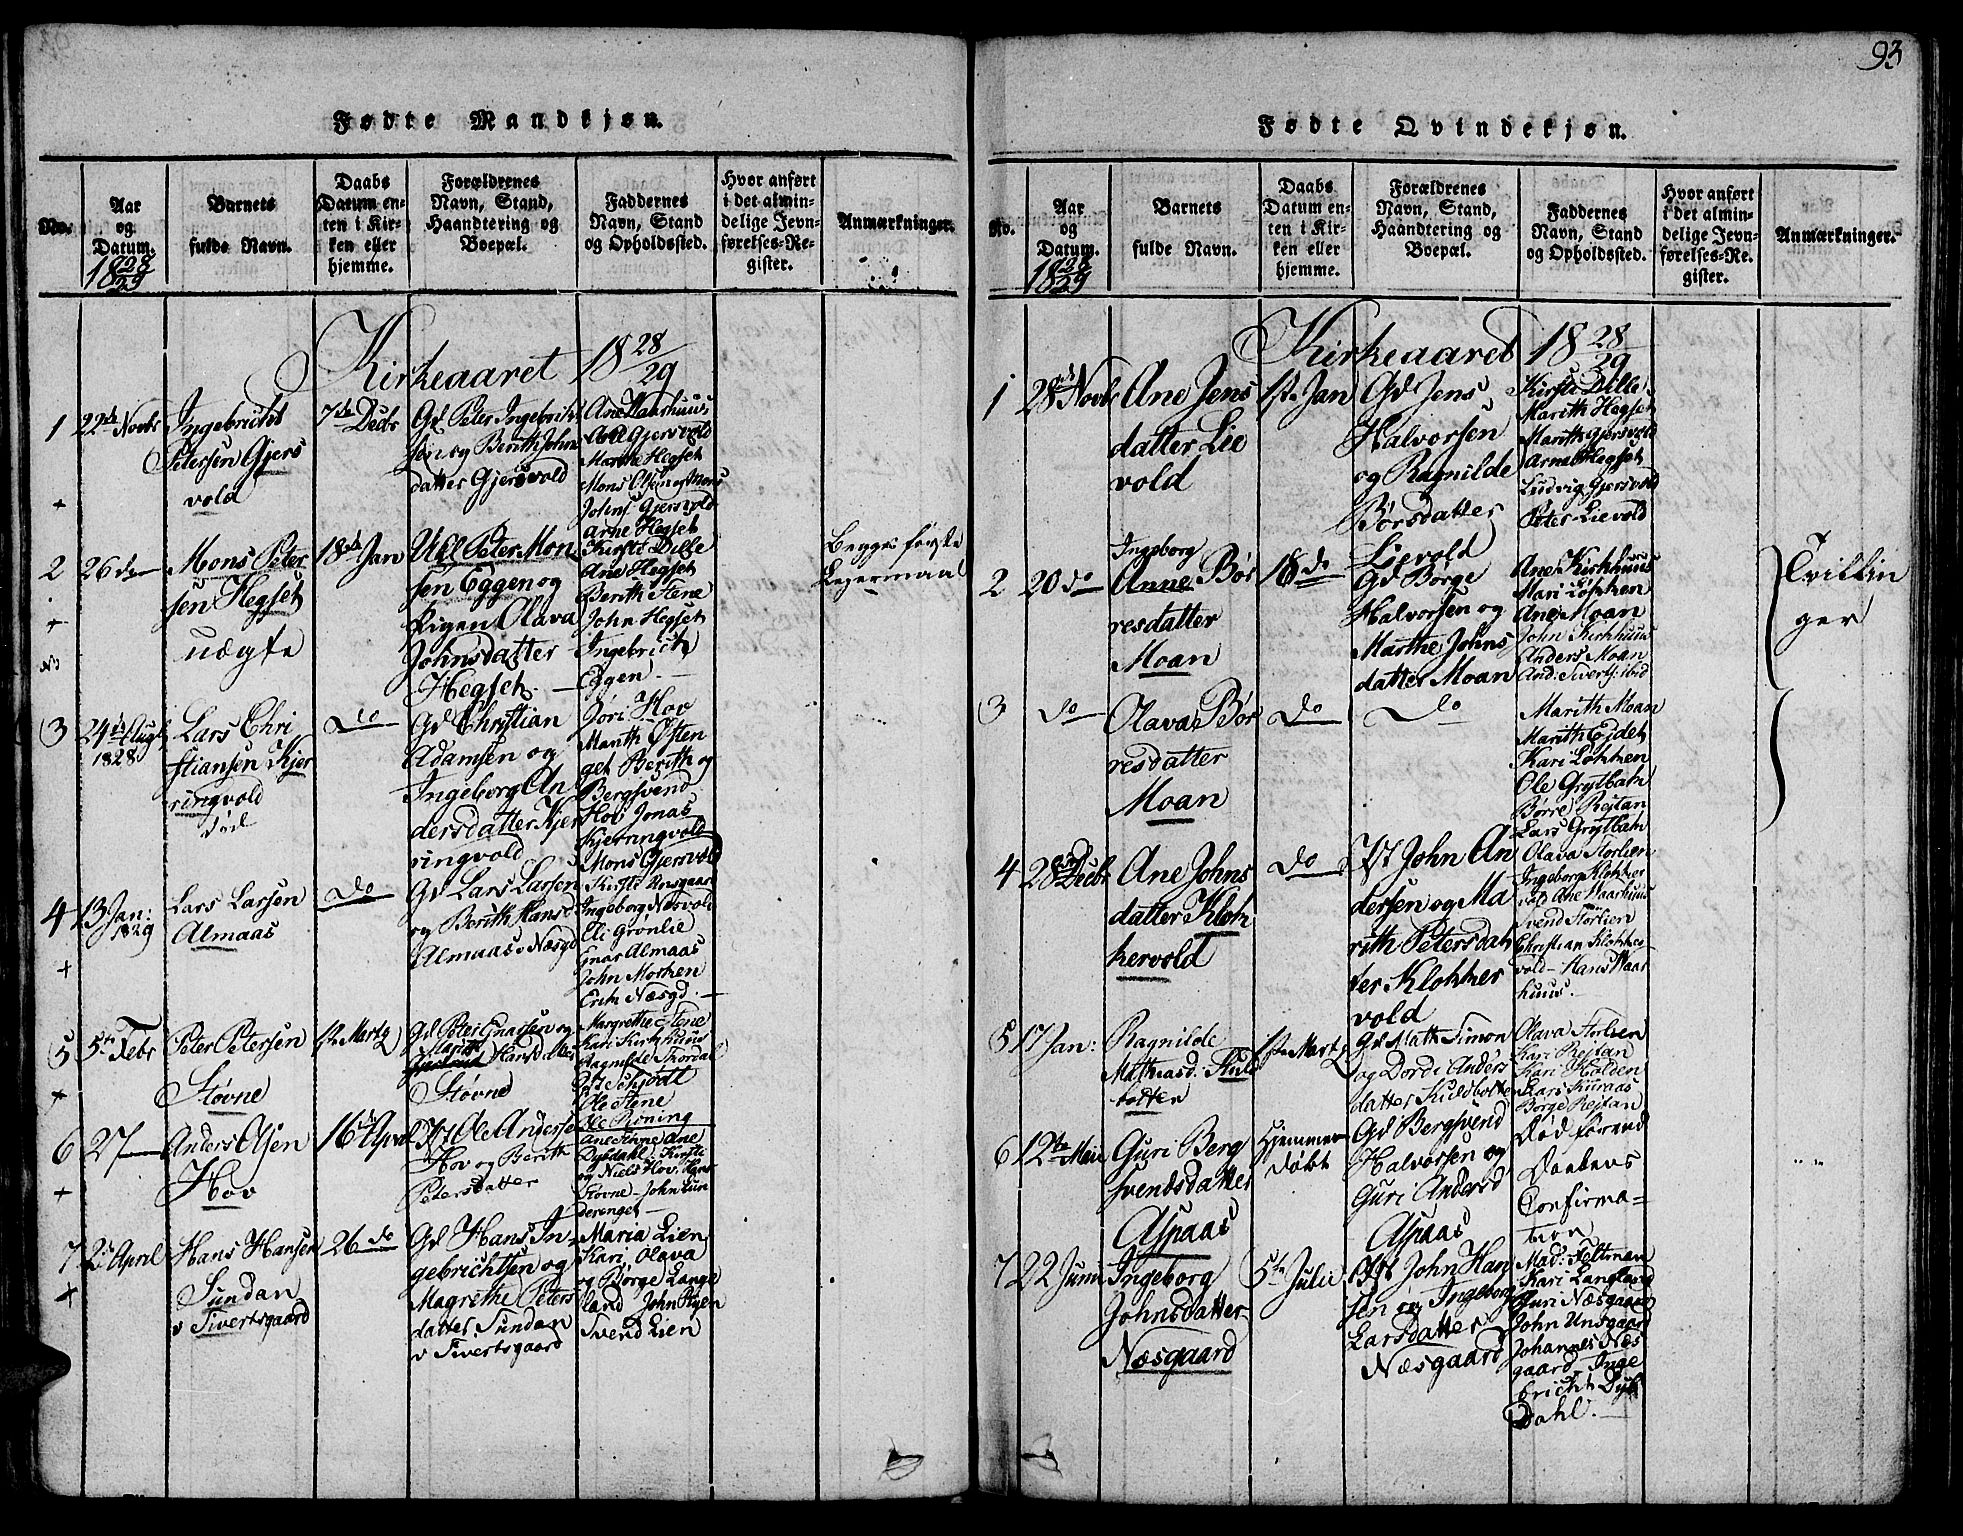 93
Fødte Mandkjøn.
No.
Aar
og
Datum.
18 28/29
Barnets
fulde Navn.
Daabs
Datum en-
ten i Kir-
ken eller
hjemme.
Forældrenes
Navn, Stand,
Haandtering og
Boepæl.
Faddernes
Navn, Stand
og Opholdssted.
Hvor anført
i det almin-
delige Jevn-
førelses-Re-
gister.
Anmærkninger.
Kirkeaaret 18 28/29
1
22de Novbr
Ingebricht
Petersen Gjers
vold
7de Decbr
Gd Peter Ingebricht
sen og Berith Johns
datter Gjersvold
Ane Aarhuus
Gjersvold
Marthe Hegset
Mons Olsen og Mons
Johns. Gjersvold
Arne Hegset
+
2
26 do
Mons Peter
sen Hegset
uægte
18de Jan
Ukl Peter Mon
sen Eggen og
Pigen Olava
Johnsdatter
Hegset.
Kirsti Dille
Ane Hegset
Berith Stene
John Hegset
Ingebricht
Eggen.
Begges første
Leiermaal
+
3
24de Augt
1828
Lars Chri
stiansen Kjer
ringvold
død
Do
Gd Christian
Adamsen og
Ingeborg An
dersdatter Kjer
ringvold
Jøri Hov
Marith Østen
get Berith og
Bergsvend
Hov Jonas
Kjerringvold
Mons Gjersvold
4
13 Jan:
1829
Lars Larsen
Almaas
Do
Gd Lars Larsen
og Berith Hansd
Almaas v Næsgd
Kirsti Unsgaard
Ingeborg Næsvold
Eli Grønlie
Enar Almaas
John Morken
Erich Næsgd.
+
5
5te Febr
Peter Petersen
Støvne
1te Martz
Gd Peter Enarsen og
Marith
Hansdatter
Støvne
Margrethe Stene
Kari Kirkhuus
Ragnilde Skordal
Schjødt
Ole Stene
Ole Røning
+
6
27
Anders Olsen
Hov
16de April
Ole Anderse
Hov og Berith
Petersdatter
Ane Stene Ane
Dysdahl, Kirsti
og Niels Hov, Hans
Støvne - John Lun
derenget
+
7
2de April
Hans Hansen
Sundan
v Sivertsgaard
26 do
Gd Hans In
gebrichtsen og
Magrethe Peters
datter Sundan
v Sivertsgaard
Maria Lien
Kari, Olava
og Børge Lange
land John Ryen
Svend Lien
+
Fødte Qvindekjøn.
No.
Aar
og
Datum.
18 28/29
Barnets
fulde Navn.
Daabs
Datum en-
ten i Kir-
ken eller
hjemme.
Forældrenes
Navn, Stand,
Haandtering og
Boepæl.
Faddernes
Navn, Stand
og Opholdssted.
Hvor anført
i det almin-
delige Jevn-
førelses-Re-
gister.
Anmærkninger.
Kirkeaaret 18 28/29
1
28de Novbr
Ane Jens
datter Lie
vold
1ste Jan
Gd Jens
Halvorsen
og Ragnilde
Børsdatter
Lievold
Kirsti Dille
Marith Hegset
Marith Gjersvold
Arne Hegset
Ludvig Gjersvold
Peter Lievold
2
20 do
Ingeborg
Anne Bør
resdatter
Moan
18 do
Gd Børge
Halvorsen og
Marthe Johns
datter Moan
Ane Kirkhuus
Mari Løkken
Ane Moan
John Kirkhuus
Anders Moan
And: Sivertz: ibid
Tvillin
ger
3
do
Olava Bør
resdatter
Moan
Do
Do
Marith Moan
Marith Eidet
Kari Løkken
Ole Grytbak
Børre Reitan
Lars Grytbak
4
28de Decbr
Ane Johns
datter Klok
kervold
Do
John An
dersen og Ma
rith Petersdat
ter Klokker
vold
Olava Storlien
Ingeborg Klokker
vold Ane Aarhuus
Svend Storlien
Christian Klokker
vold - Hans Aar
huus.
5
17 Jan:
Ragnilde
Mathiasd: Kuls
botten
1ste Martz
Gd Math Simon
og Dordi Anders
datter Kulsbotten
Olava Storlien
Kari Reitan
Kari Holden
Lars Kuraas
Børge Reitan
6
12te Mai
Guri Berg
svendsdatter
Aspaas
Hjemme
døbt
Gd Bergsvend
Halvorsen og
Guri Andersd
Aspaas
Død førend
Daabens
Confirma-
tion
7
22 Juni
Ingeborg
Johnsdatter
Næsgaard
5te Julii
John Han
sen og Ingeborg
Larsdatter
Næsgaard
Mad: Feltman
Kari Langland
Guri Næsgaard
John Unsgaard
Johannes Næs
gaard, Inge
bricht Dys
Dahl.